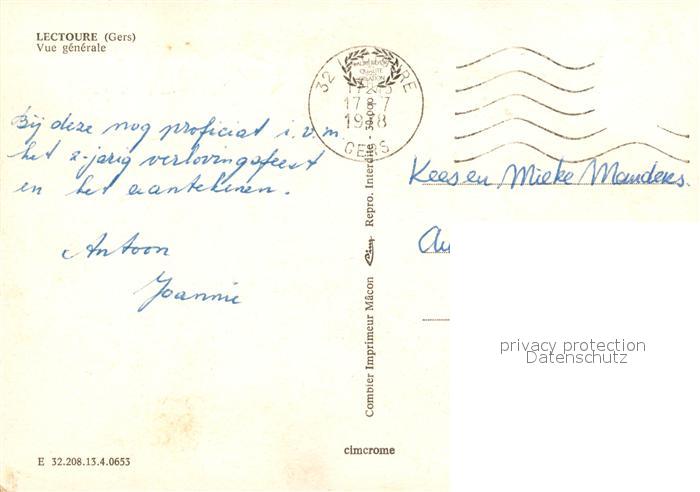 LECTOURE (Gers)
Vue générale
Bij deze nog proficiat i.v.m.
het 2-jarig verlovingsfeest
en het aantekenen.
Antoon
Joannie
E 32.208.13.4.0653
32 RE
17-7
GERS
Combier Imprimeur Mâcon Cim Repro. Interdite
cimcrome
Kees en Mieke Manders.
privacy protection
Datenschutz